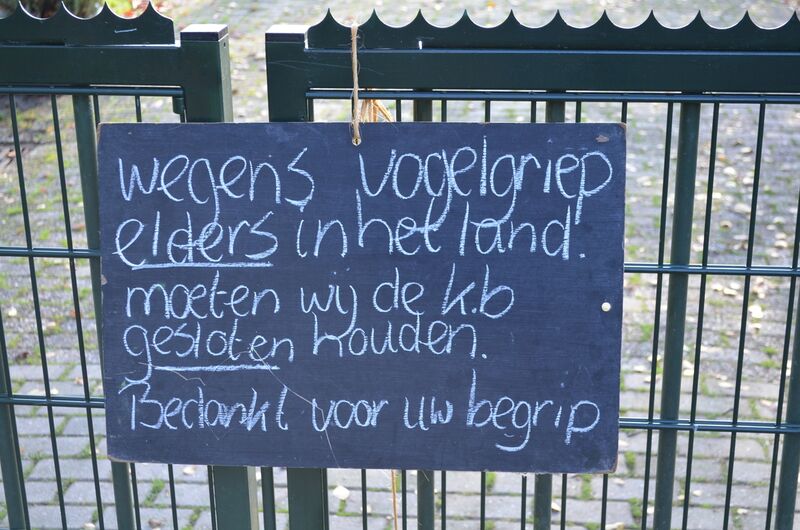 wegens vogelgriep
elders in het land.
moeten wij de k.b
gesloten houden.
Bedankt voor uw begrip